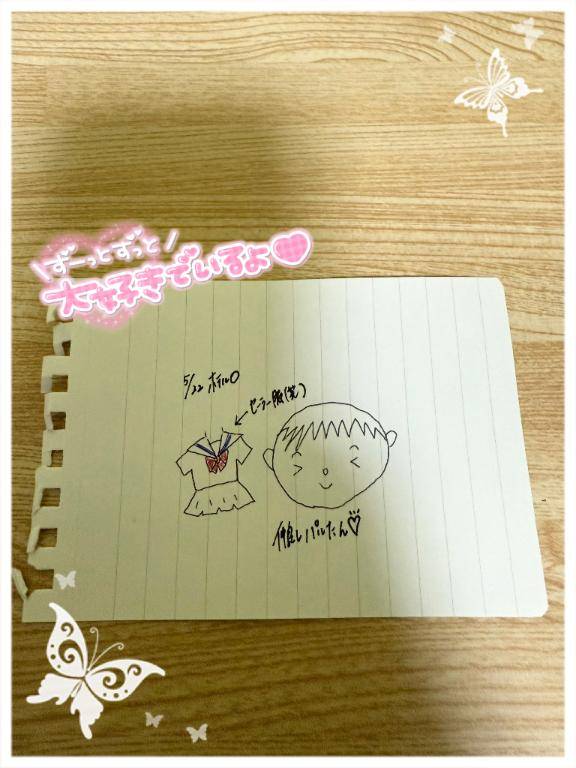 ずーっとずっと
大好きでいるよ
5/22 ホテル〇
セーラー服(笑)
推しパルたん♡